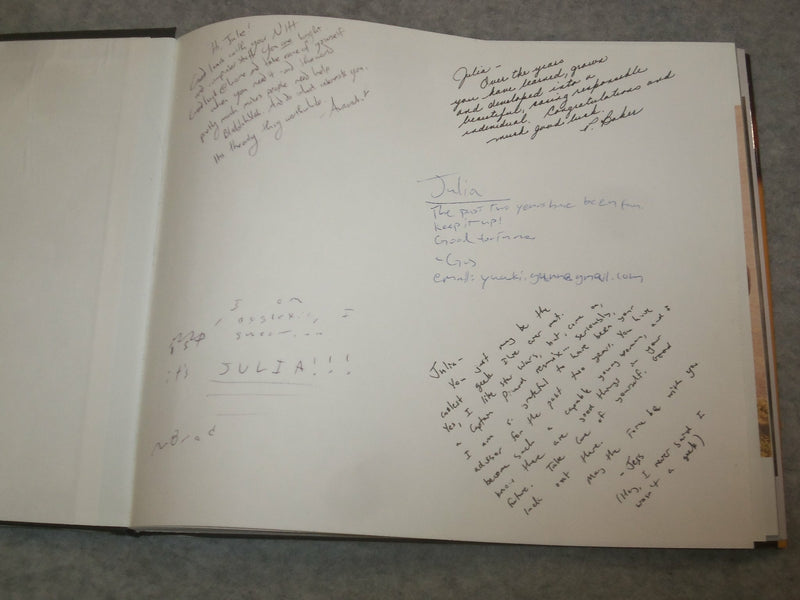 Hi, Julie!
Good luck with your NIH
and computer stuff. You are bright
Good luck @ home and take care of yourself
when you need it and
pretty much makes people need help
Blahblahblah. And do what interests you.
Its the only thing worthwhile.
Julia -
Over the years
you have learned, grown
and developed into a
beautiful, caring responsible
individual. Congratulations and
much good luck.
L. Baker
Julia
The past two years have been fun
Keep it up!
Good fortune
-Gus
I am
I
it's JULIA!!!
~Brad
Julia-
You just may be the
coolest geek I've ever met.
Yes, I like Star Wars, but, come on,
a Captain Picard ... seriously.
I am so grateful to have been your
advisor for the past two years. You have
become such a capable young woman, and I
know there are good things in your
future. Take care of yourself. Good
luck out there.
May the Force be with you
-Jess
(Hey, I never said I
wasn't a geek)